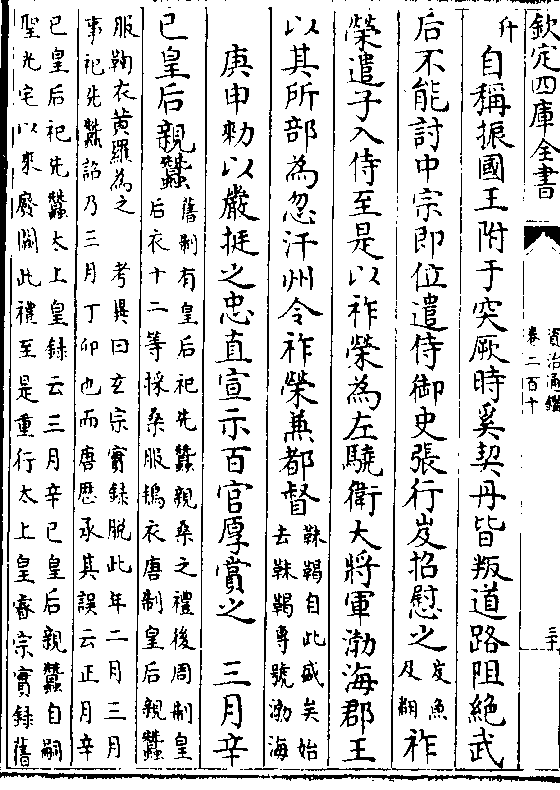 欽定四庫全書
資治通鑑
卷二百十
三十
升
自稱振國王附于突厥時奚契丹皆叛道路阻絶武
后不能討中宗即位遣侍御史張行岌招慰之岌魚及翻祚
榮遣子入侍至是以祚榮為左驍衛大將軍渤海郡王
以其所部為忽汗州令祚榮兼都督靺鞨自此盛矣始
去靺鞨專號渤海
庚申敕以嚴挺之忠直宣示百官厚賞之　三月辛
已皇后親蠶舊制有皇后祀先蠶親桑之禮後周制皇
后衣十二等採桑服鳪衣唐制皇后親蠶
服鞠衣黄羅為之　考異曰玄宗實録脱此年二月三月
事祀先蠶詔乃三月丁卯也而唐歷承其誤云正月辛
已皇后祀先蠶太上皇録云三月辛已皇后親蠶自嗣
聖光宅以來廢闕此禮至是重行太上皇睿宗實録舊